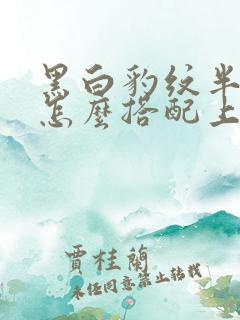 黑白豹纹半
怎麽搭配上
賈桂蘭
未经同意禁止转载